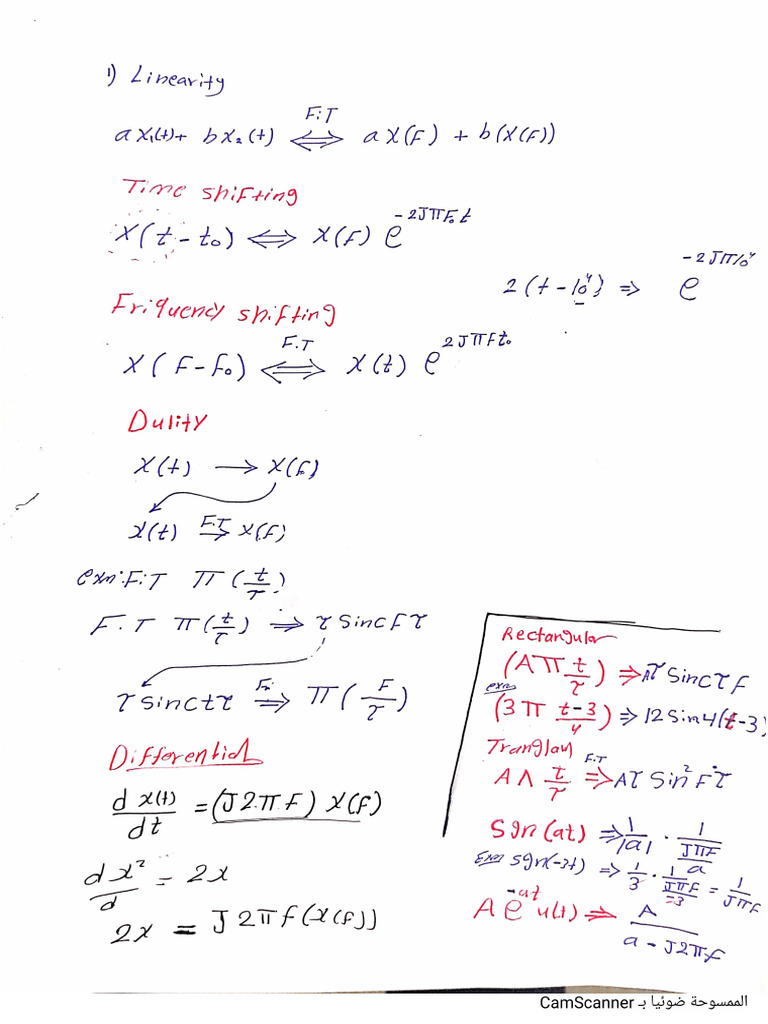 1) Linearity
F.T
a x₁(t) + b x₂(t) ⟺ a X(F) + b(X(F))
Time shifting
X(t - t₀) ⟺ X(F) e^{-2JπF₀t}
2(t - 10⁴) ⇒ e^{-2Jπ10⁴}
Friquency shifting
F.T
X(F - F₀) ⟺ X(t) e^{2JπFt₀}
Dulity
X(t) → X(f)
X(t) ⇒ X(f)
F.T
exm: F.T π(t/τ)
F.T π(t/τ) ⇒ τ sinc Fτ
τ sinc tτ ⇒ π(F/τ)
Differential
d x(t)/dt = (J2πF) X(f)
d x²/d = 2x
2x = J2πf(x(f))
Rectangular
(Aπ t/τ) ⇒ Aτ sinc τF
exm
(3π t-3/4) ⇒ 12 sin 4(t-3)
Tranglay
F.T
A Λ t/τ ⇒ Aτ sin² F τ
Sgn(at) ⇒ 1/|a| · 1/(JπF/a)
Exm sgn(-3t) ⇒ 1/3 · 1/(JπF/=3) = 1/JπF
A e^{-at} u(t) ⇒ A/(a - J2πf)
الممسوحة ضوئيا بـ CamScanner